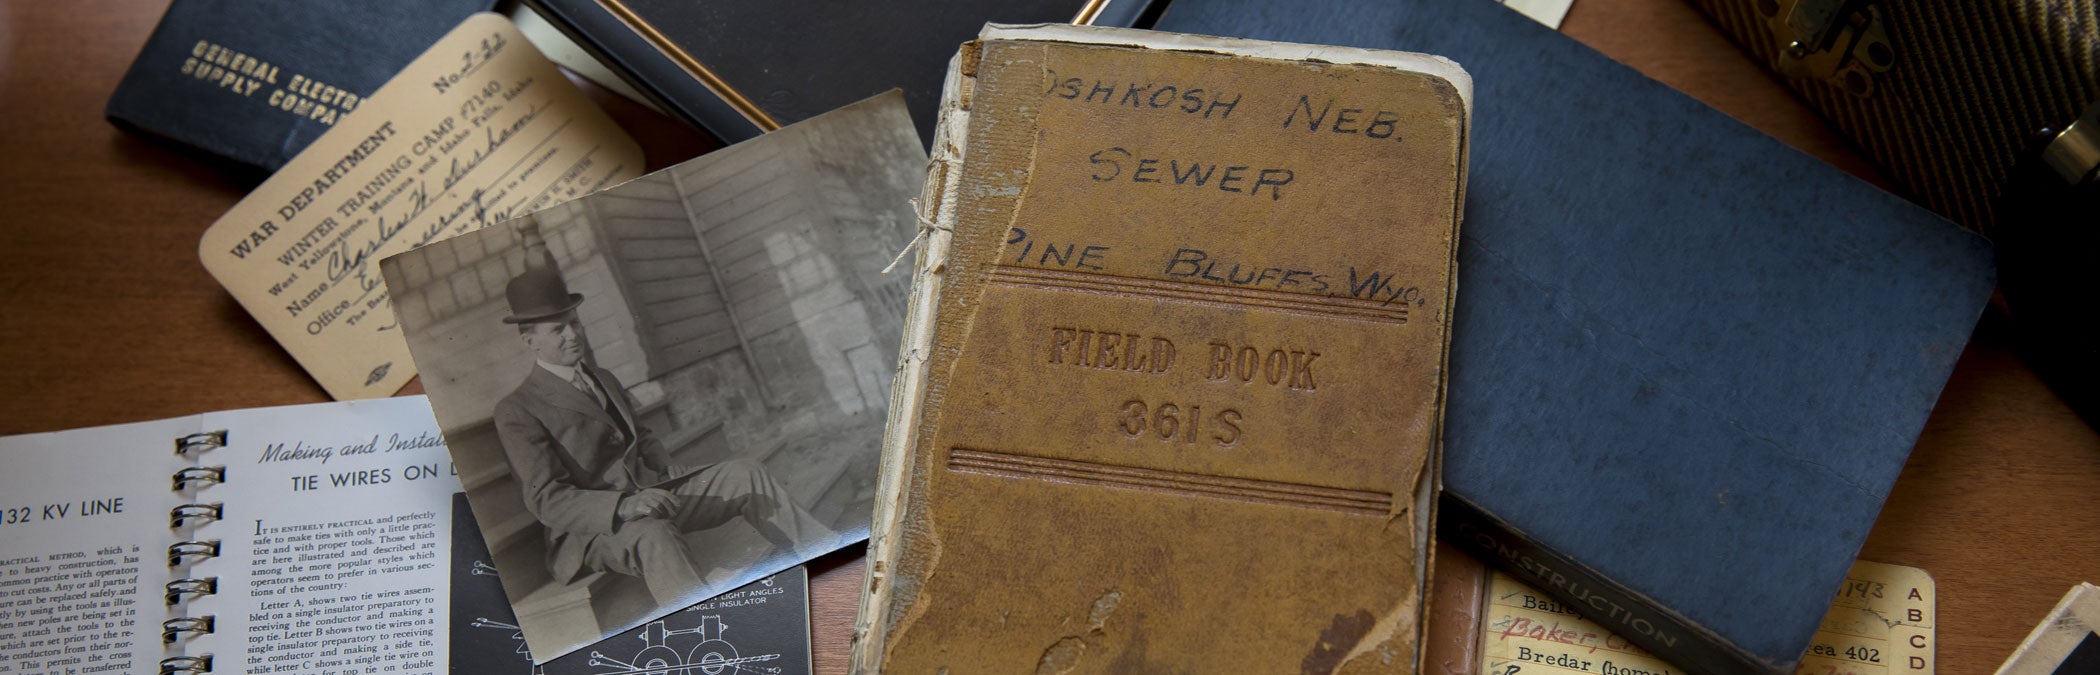 GENERAL ELECTRIC
SUPPLY COMPANY
No. 2-22
WAR DEPARTMENT
WINTER TRAINING CAMP #7140
West Yellowstone, Montana and Idaho Falls, Idaho
Name Charles H Durham
Office
132 KV LINE
METHOD, which is
to heavy construction, has
common practice with operators
to cut costs. Any or all parts of
can be replaced safely and
by using the tools as illus-
when new poles are being set in
attach the tools to the
which are set prior to the re-
conductors from their nor-
This permits the cross
to be transferred
Making and Instal
TIE WIRES ON L
IT IS ENTIRELY PRACTICAL and perfectly
safe to make ties with only a little prac-
tice and with proper tools. Those which
are here illustrated and described are
among the more popular styles which
operators seem to prefer in various sec-
tions of the country:
Letter A, shows two tie wires assem-
bled on a single insulator preparatory to
receiving the conductor and making a
top tie. Letter B shows two tie wires on a
single insulator preparatory to receiving
the conductor and making a side tie,
while letter C shows a single tie wire on
for top tie on double
LIGHT ANGLES
SINGLE INSULATOR
OSHKOSH NEB.
SEWER
PINE BLUFFS, WYO.
FIELD BOOK
361 S
CONSTRUCTION
Baker,
Bredar (home
402
A
B
C
D